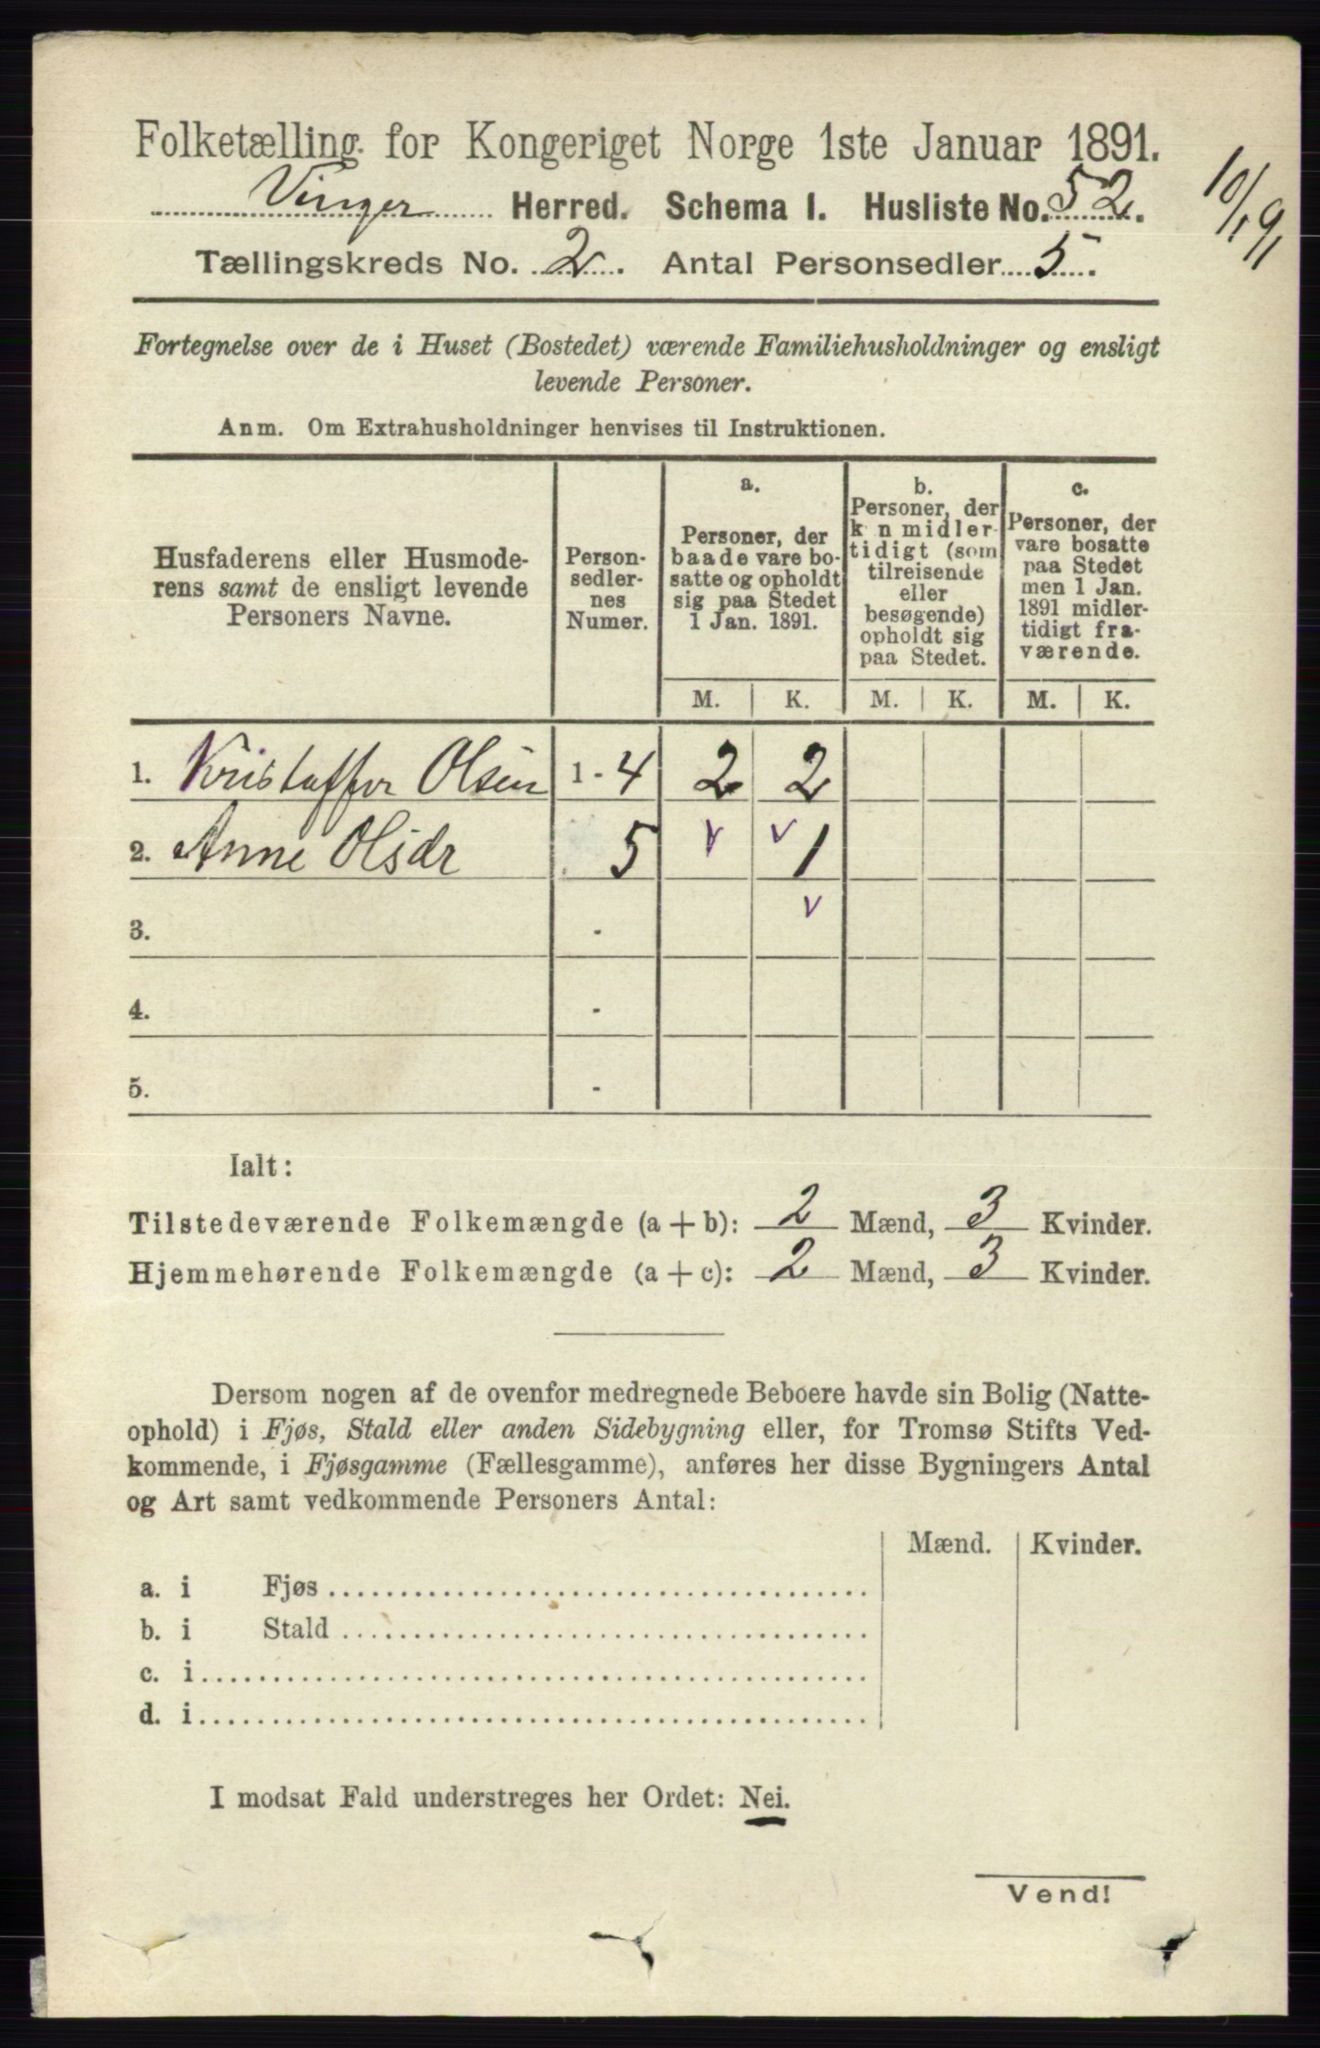 Folketælling for Kongeriget Norge 1ste Januar 1891.
Vinger Herred. Schema I. Husliste No. 52.
10/1 91
Tællingskreds No. 2. Antal Personsedler 5.
Fortegnelse over de i Huset (Bostedet) værende Familiehusholdninger og ensligt
levende Personer.
Anm. Om Extrahusholdninger henvises til Instruktionen.
Husfaderens eller Husmode-
rens samt de ensligt levende
Personers Navne.
Person-
sedler-
nes
Numer.
a.
Personer, der
baade vare bo-
satte og opholdt
sig paa Stedet
1 Jan. 1891.
b.
Personer, der
k n midler-
tidigt (som
tilreisende
eller
besøgende)
opholdt sig
paa Stedet.
c.
Personer, der
vare bosatte
paa Stedet
men 1 Jan.
1891 midler-
tidigt fra-
værende.
M. K. M. K. M. K.
1. Kristoffer Olsen 1-4 2 2
2. Anne Olsdr 5 v v 1
3. - v
4. -
5. -
Ialt:
Tilstedeværende Folkemængde (a + b): 2 Mænd, 3 Kvinder.
Hjemmehørende Folkemængde (a + c): 2 Mænd, 3 Kvinder.
Dersom nogen af de ovenfor medregnede Beboere havde sin Bolig (Natte-
ophold) i Fjøs, Stald eller anden Sidebygning eller, for Tromsø Stifts Ved-
kommende, i Fjøsgamme (Fællesgamme), anføres her disse Bygningers Antal
og Art samt vedkommende Personers Antal:
Mænd. Kvinder.
a. i Fjøs
b. i Stald
c. i
d. i
I modsat Fald understreges her Ordet: Nei.
Vend!